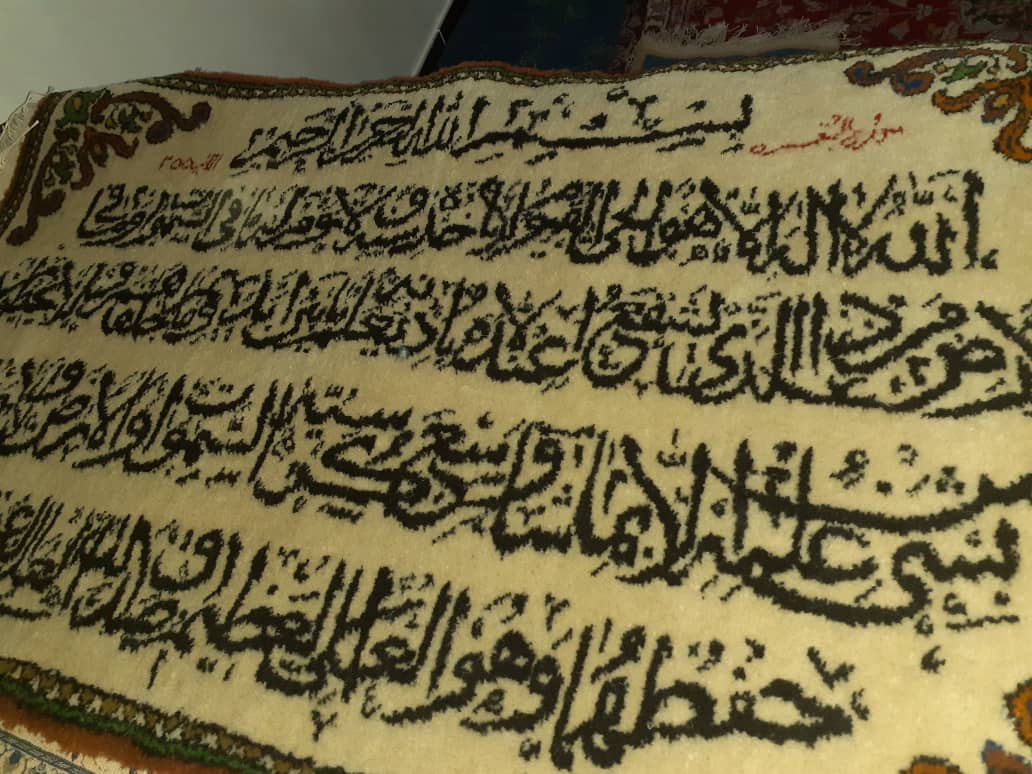 سورة البقرة بسم الله الرحمن الرحيم الآية ٢٥٥
الله لا إله إلا هو الحي القيوم لا تأخذه سنة ولا نوم له ما في السموات وما في
الأرض من ذا الذي يشفع عنده إلا بإذنه يعلم ما بين أيديهم وما خلفهم ولا يحيطون
بشيء من علمه إلا بما شاء وسع كرسيه السموات والأرض ولا
حفظهما وهو العلي العظيم صدق الله العلي